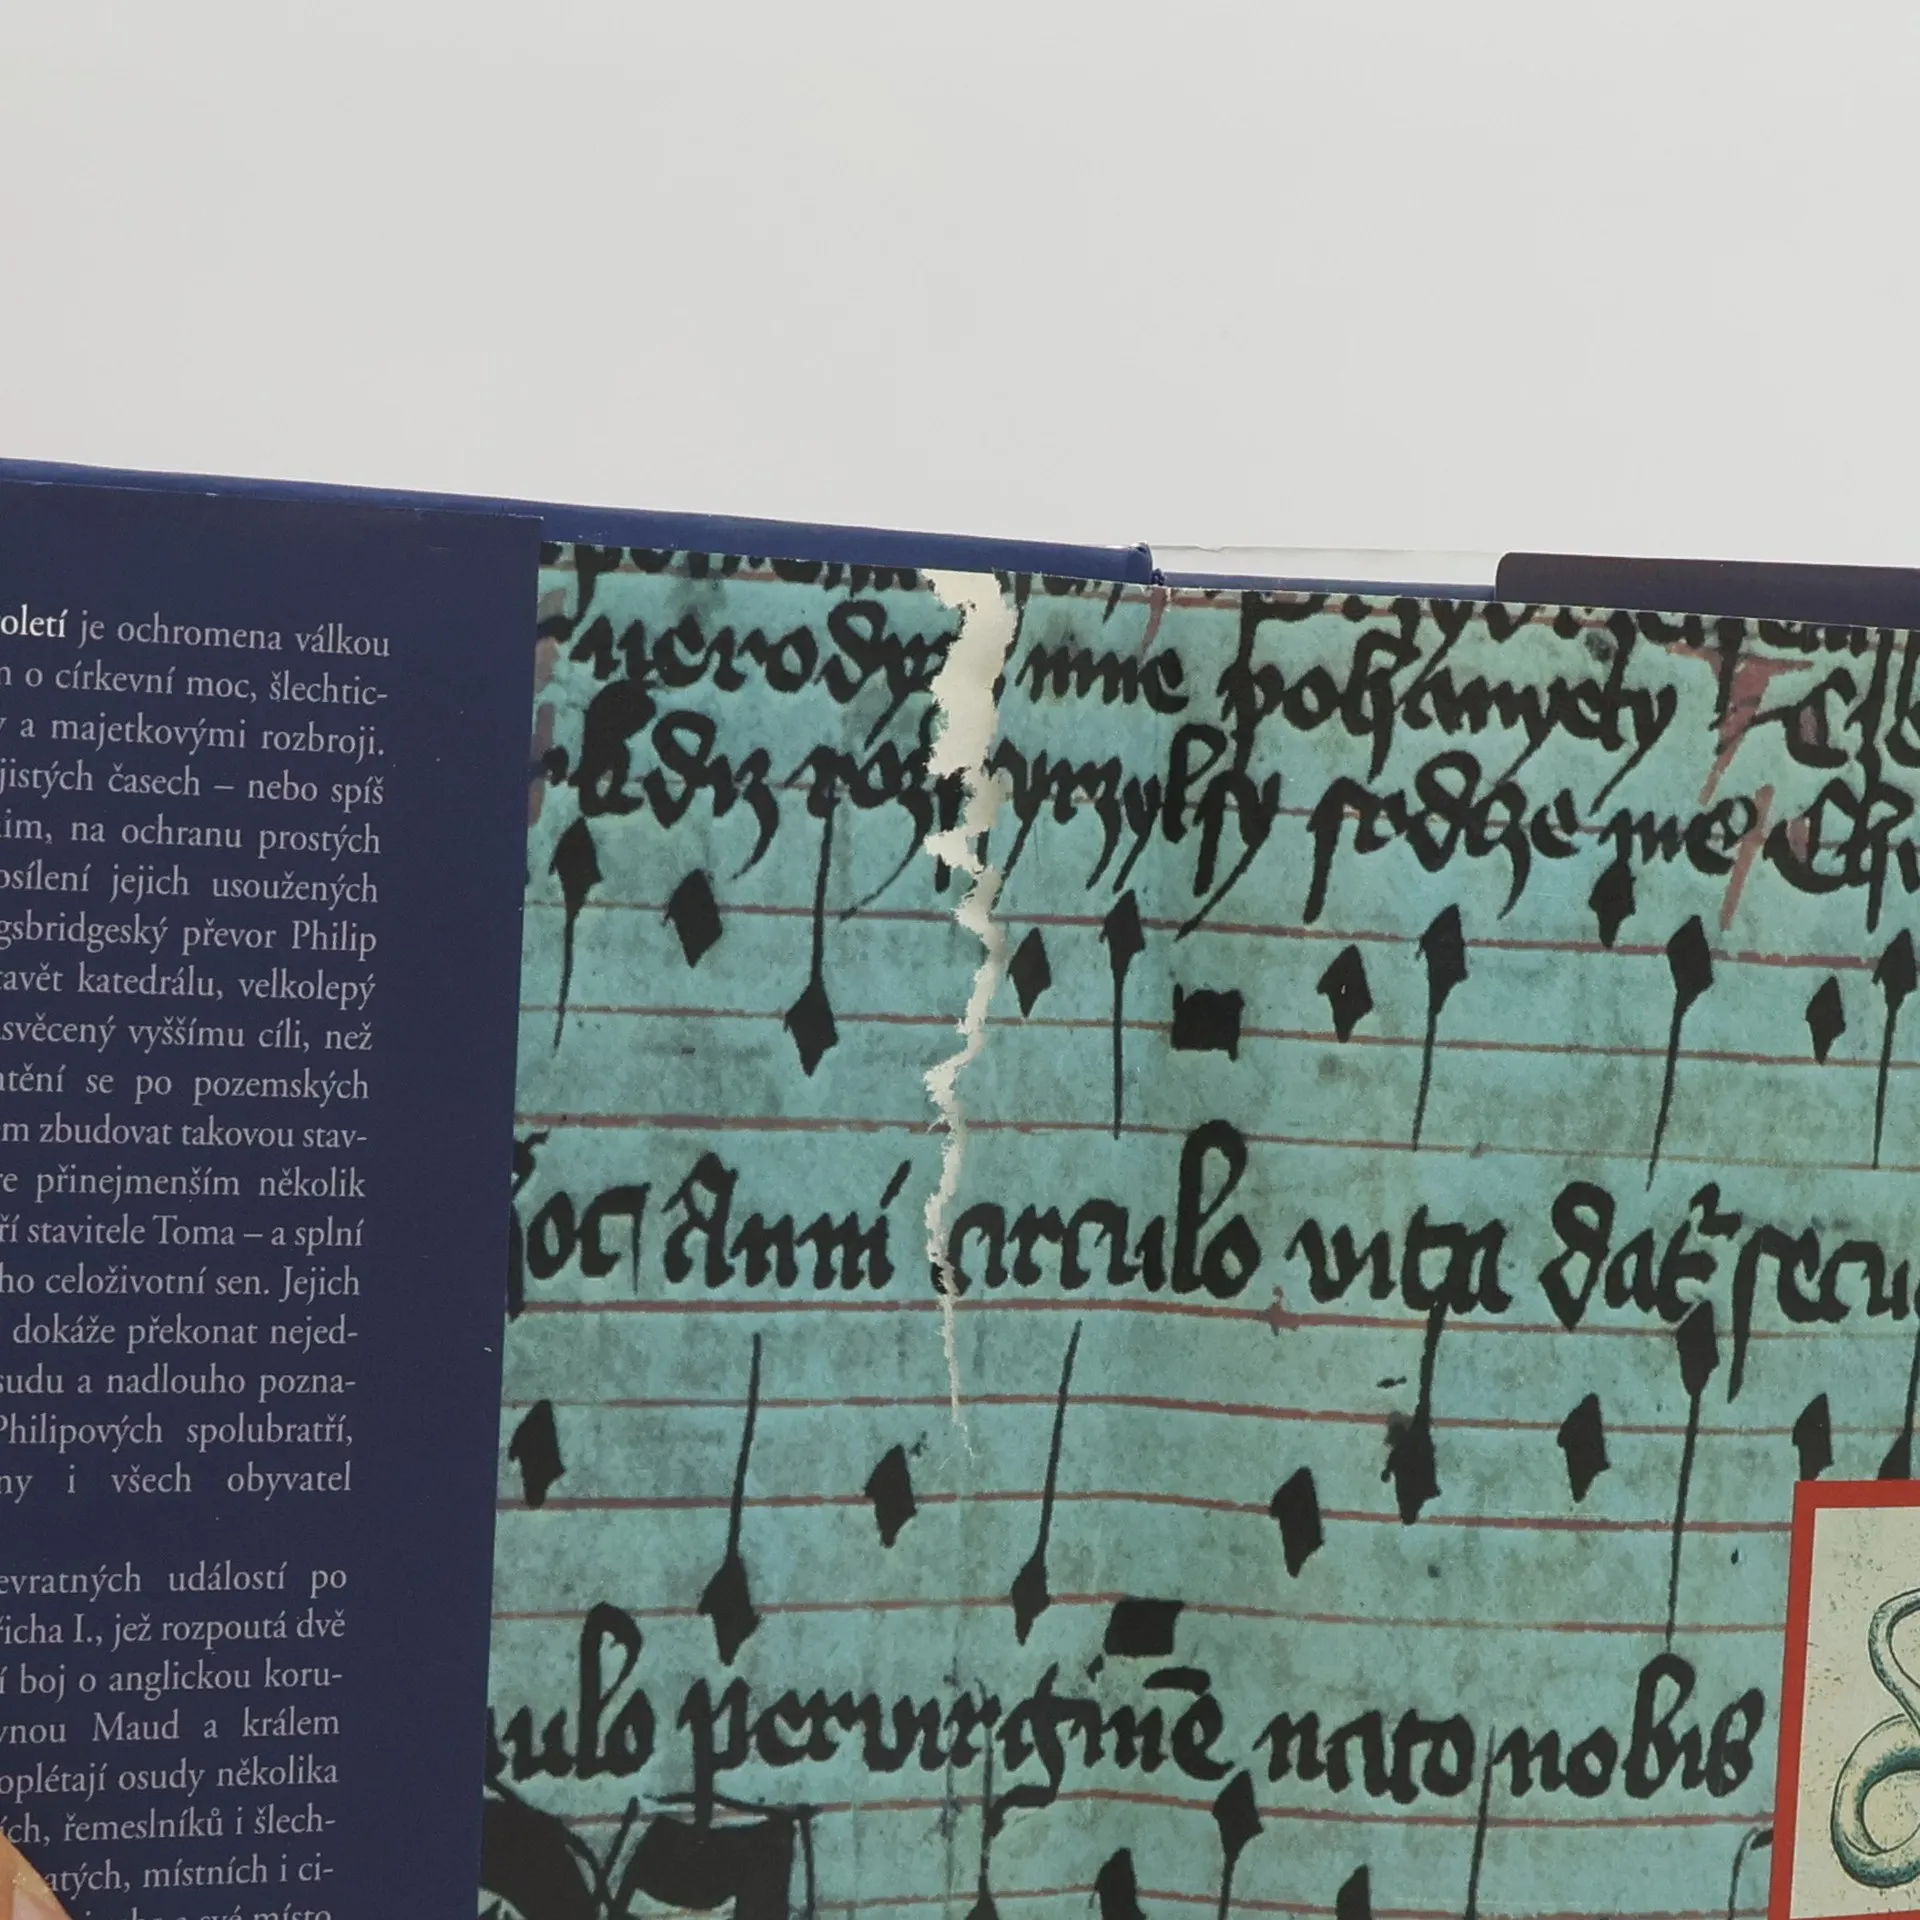 oletí je ochromena válkou
o církevní moc, šlechtic-
a majetkovými rozbroji.
jistých časech – nebo spíš
ním, na ochranu prostých
osílení jejich usoužených
gsbridgeský převor Philip
tavět katedrálu, velkolepý
svěcený vyššímu cíli, než
ntění se po pozemských
m zbudovat takovou stav-
re přinejmenším několik
ří stavitele Toma – a splní
ho celoživotní sen. Jejich
dokáže překonat nejed-
sudu a nadlouho pozna-
Philipových spolubratří,
ny i všech obyvatel
evratných událostí po
řicha I., jež rozpoutá dvě
í boj o anglickou koru-
vnou Maud a králem
oplétají osudy několika
ích, řemeslníků i šlech-
atých, místních i ci-
své místo
mne pohanyety
sedze me
Anni circulo vita dat secu
ulo per virginē nato nobis